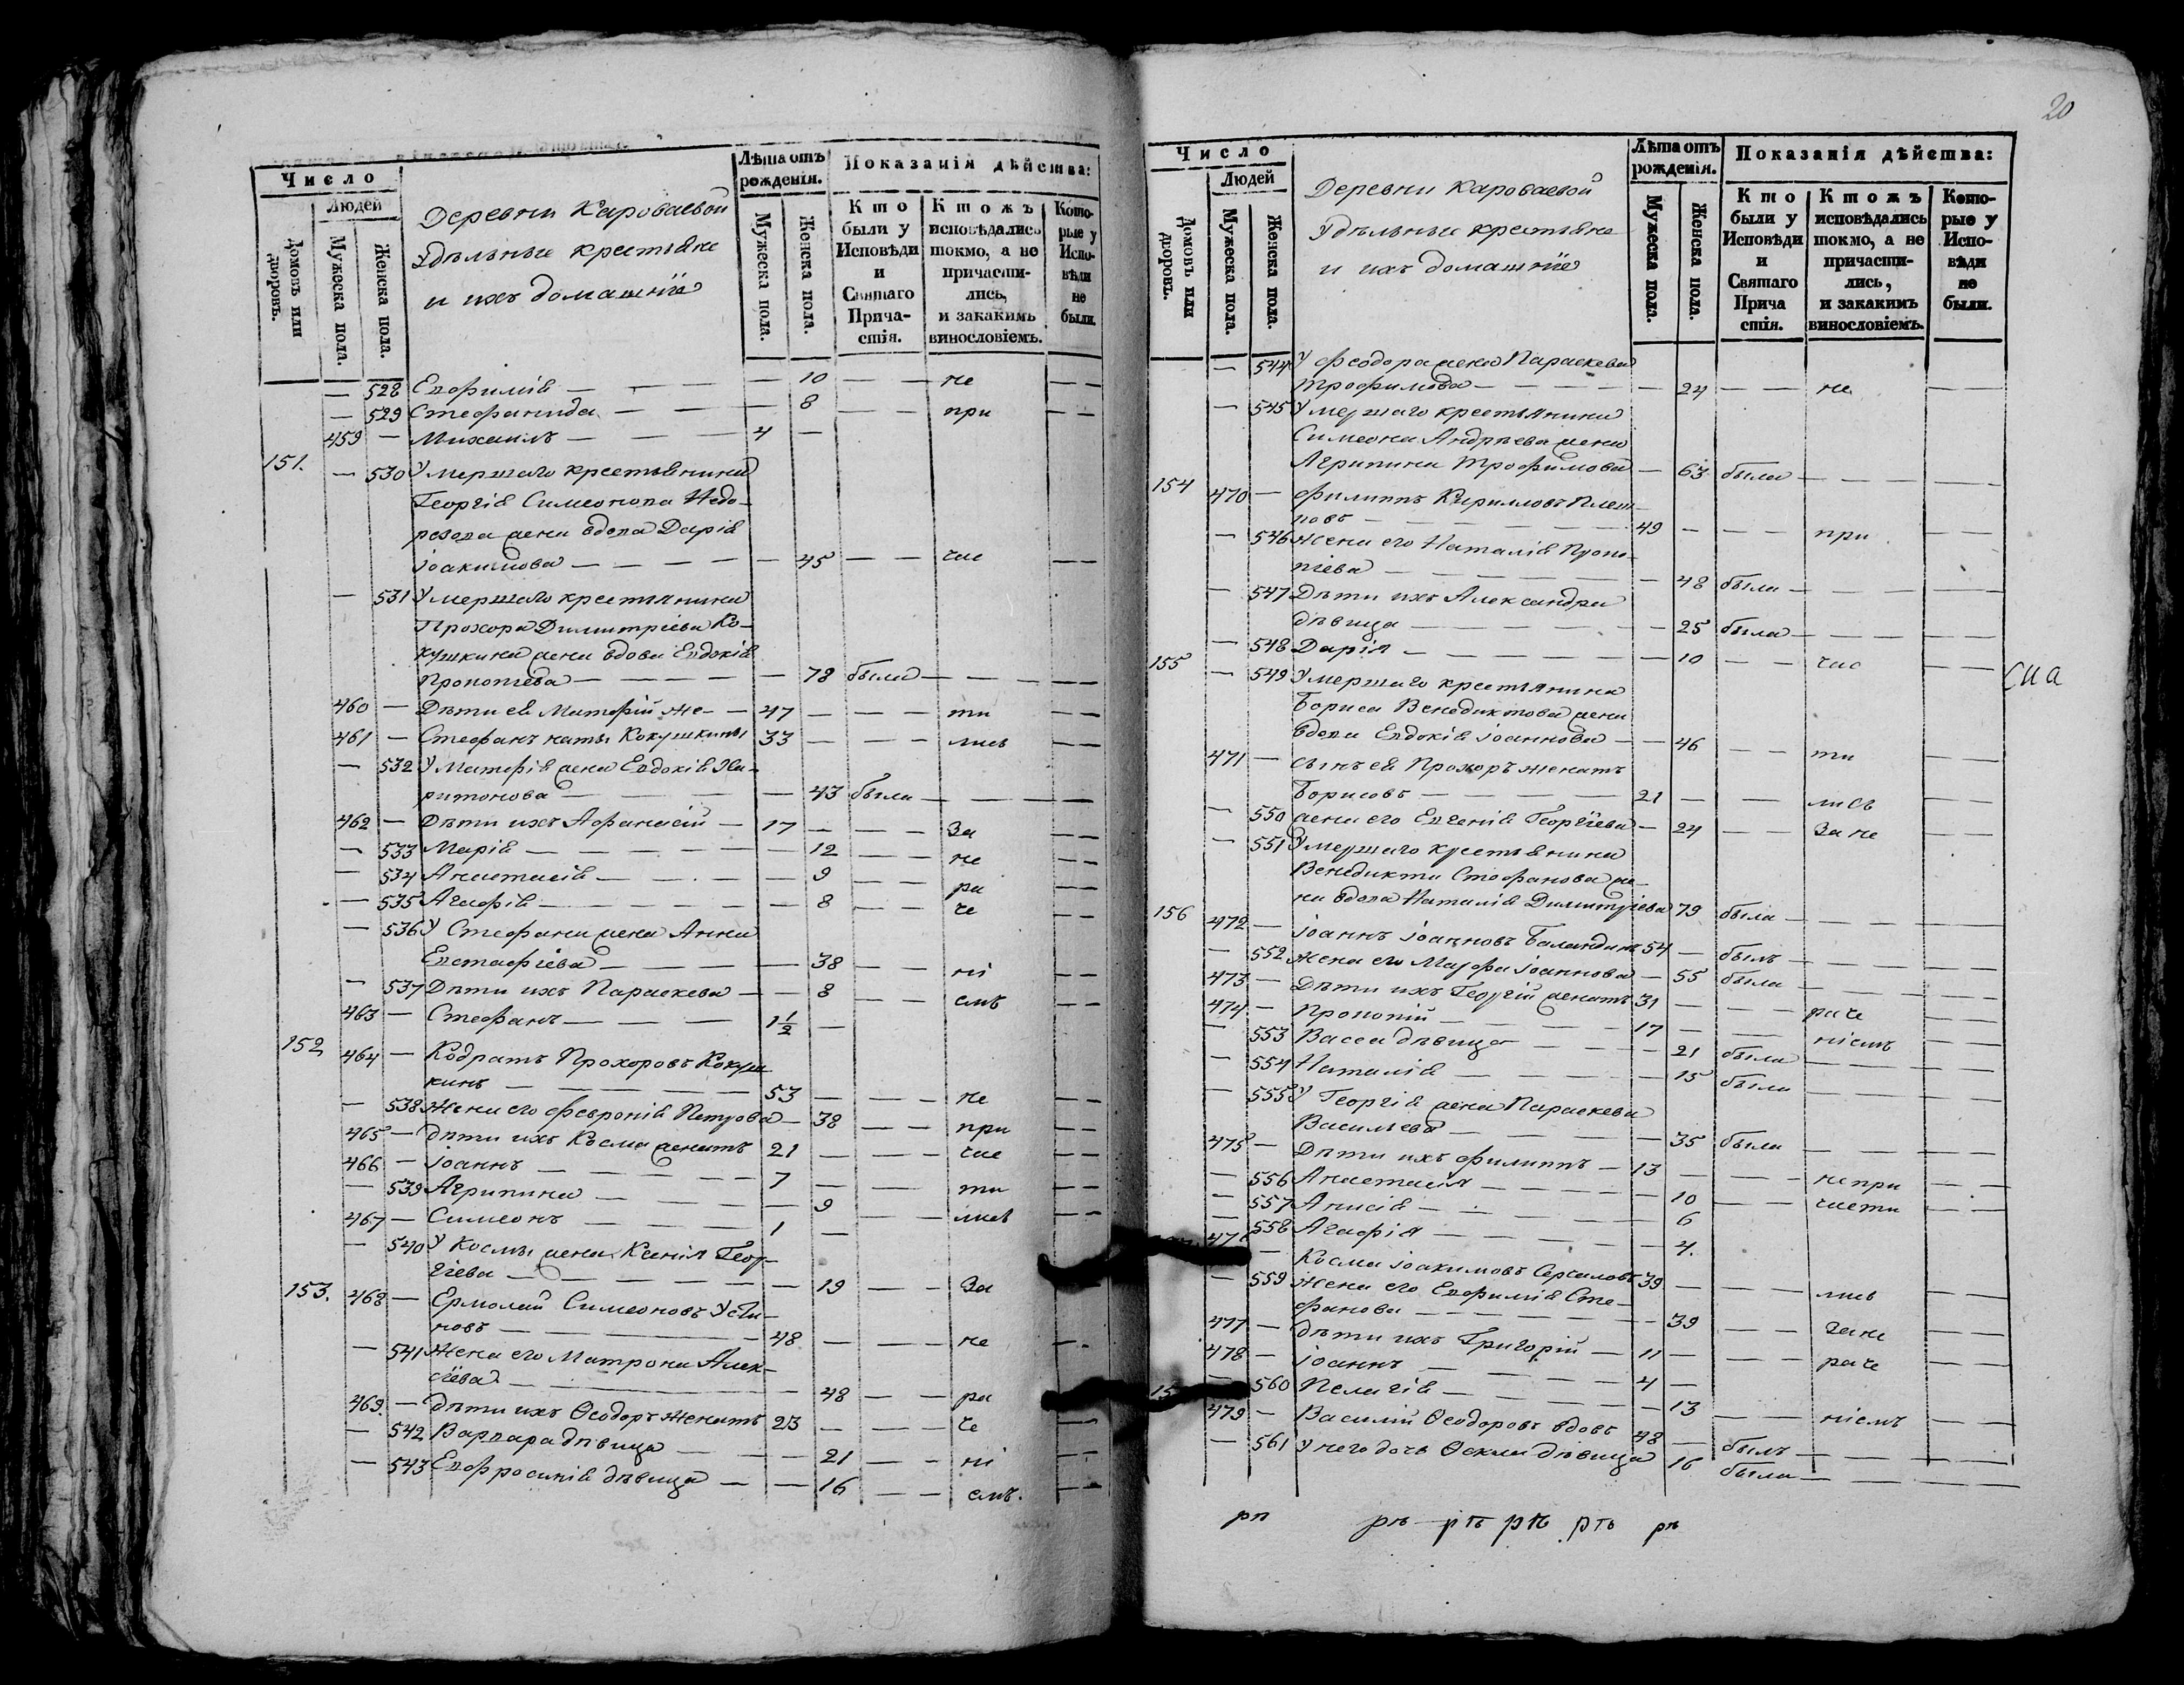 20
Число
Людей
Домовъ или дворовъ.
Мужеска пола.
Женска пола.
Деревни Короваевой
Удѣльные крестьяне
и ихъ домашнїе
Лѣта отъ рожденія.
Мужеска пола.
Женска пола.
Показанія дѣйства:
Кто были у Исповѣди и Святаго Прича-стія.
Ктожъ исповѣдались токмо, а не причасти-лись, и закакимъ винословіемъ.
Кото-рые у Испо-вѣди не были.
— 528 Евфимія — — — — 10 — — не — —
— 529 Стефанида — — — 8 — — при — —
459 — Михаилъ — — — 4 —
151. — 530 Умершаго крестьянина
Георгія Симеонова Недо-
резова жена вдова Дарія
Іоакимова — — — — 45 — — час — —
— 531 Умершаго крестьянина
Прохора Димитріева Ко-
кушкина жена вдова Евдокія
Прокопіева — — — — 78 была — — — —
460 — Дѣти ея Матфій же — 47 — — — ти — —
461 — Стефанъ наты Кокушкины 33 — — — лись — —
— 532 У Матфія жена Евдокія Ха-
ритонова — — — — 43 была — — — —
462 — Дѣти ихъ Афанасій — 17 — — — За — —
— 533 Марія — — — — — 12 — — не — —
— 534 Анастасія — — — — 9 — — ра — —
— 535 Агафія — — — — — 8 — — че — —
— 536 У Стефана жена Анна
Евстафіева — — — — 38 — — ні — —
— 537 Дѣти ихъ Параскева — — 8 — — емъ — —
463 — Стефанъ — — — 1½ —
152 464 — Кодратъ Прохоровъ Кокуш-
кинъ — — — — 53 — — — не — —
— 538 Жена его Феврония Петрова — 38 — — при — —
465 — Дѣти ихъ Косма женатъ 21 — — — час — —
466 — Іоаннъ — — — — 7 — — — ти — —
— 539 Агрипина — — — — 9 — — лись — —
467 — Симеонъ — — — 1 —
— 540 У Космы жена Ксенія Геор-
гіева — — — — — 19 — — За — —
153. 468 — Ермолай Симеоновъ Усти-
новъ — — — — 48 — — — не — —
— 541 Жена его Матрона Алек-
сіева — — — — — 48 — — ра — —
469. — Дѣти ихъ Ѳеодоръ женатъ 23 — — — че — —
— 542 Варвара дѣвица — — — 21 — — ні — —
— 543 Евфросинія дѣвица — — 16 — — емъ. — —
Число
Людей
Домовъ или дворовъ.
Мужеска пола.
Женска пола.
Деревни Короваевой
Удѣльные крестьяне
и ихъ домашнїе
Лѣта отъ рожденія.
Мужеска пола.
Женска пола.
Показанія дѣйства:
Кто были у Исповѣди и Святаго Прича стія.
Ктожъ исповѣдались токмо, а не причасти-лись, и закакимъ винословіемъ.
Кото-рые у Испо-вѣди не были.
— 544 У Феодора жена Параскева
Трофимова — — — — — 24 — — не — —
— 545 Умершаго крестьянина
Симеона Андрѣева жена
Агрипина Трофимова — 63 была — — — —
154 470 — Филиппъ Кирилловъ Плеш-
ковъ — — — — — 49 — — — при — —
— 546 Жена его Наталія Проко-
піева — — — — — 48 была — — — —
— 547 Дѣти ихъ Александра
дѣвица — — — — — 25 была — — — —
— 548 Дарія — — — — — 10 — — час — —
155 — 549 Умершаго крестьянина
Бориса Венедиктова жена
вдова Евдокія Іоаннова — — 46 — — ти — —
471 — сынъ ея Прохоръ женатъ
Борисовъ — — — — 21 — — лись — —
— 550 жена его Евгенія Георгіева — 24 — — За не — —
— 551 Умершаго крестьянина
Венедикта Стефанова же-
на вдова Наталія Димитріева 79 была — — — —
156 472 — Іоаннъ Іоанновъ Баландинъ 54 — былъ — — — —
— 552 Жена его Марфа Іоаннова — 55 была — — — —
473 — Дѣти ихъ Георгій женатъ 31 — — — раче — —
474 — Прокопій — — — — 17 — — ніемъ — —
— 553 Васса дѣвица — — — — 21 была — — — —
— 554 Наталія — — — — — 15 была — — — —
— 555 У Георгія жена Параскева
Васильева — — — — — 35 была — — — —
475 — Дѣти ихъ Филиппъ — 13 — — — непри — —
— 556 Анастасія — — — — 10 — — части — —
— 557 Анисія — — — — — 6
— 558 Агафія — — — — — 4.
— Косма Іоакимовъ 39 — — — лись — —
— 559 Жена его Евфимія Сте-
фанова — — — — — 39 — — Зане — —
477 — Дѣти ихъ Григорій — 11 — — — раче — —
478 — Іоаннъ — — — — 4 —
— 560 Пелагія — — — — — 13 — — ніемъ — —
479 — Василій Ѳеодоровъ вдовъ 48 — былъ — — — —
— 561 У него дочь Ѳекла дѣвица 16 была — — — —